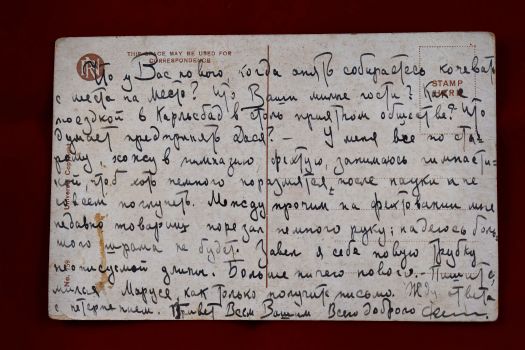 THIS SPACE MAY BE USED FOR
CORRESPONDENCE
Что у Вас нового, когда опять собираетесь кочевать
STAMP
HERE
с места на место? Что Ваши милые гости? Как с
поездкой в Карльсбад в столь приятном обществе? Что
думает предпринять Дася? — У меня все по ста-
рому, хожу в гимназию, фехтую, занимаюсь гимнасти-
кой, чтоб хоть немного поразмяться после науки и не
совсем поглупеть. Между прочим на фехтовании мне
недавно товарищ порезал немного руку; надеюсь боль-
шого шрама не будет. Завел я себе новую трубку
неописуемой длины. Больше ничего нового. Пишите,
милая Маруся как только получите письмо. Жду ответа
с нетерпением. Привет Всем Вашим Всего доброго